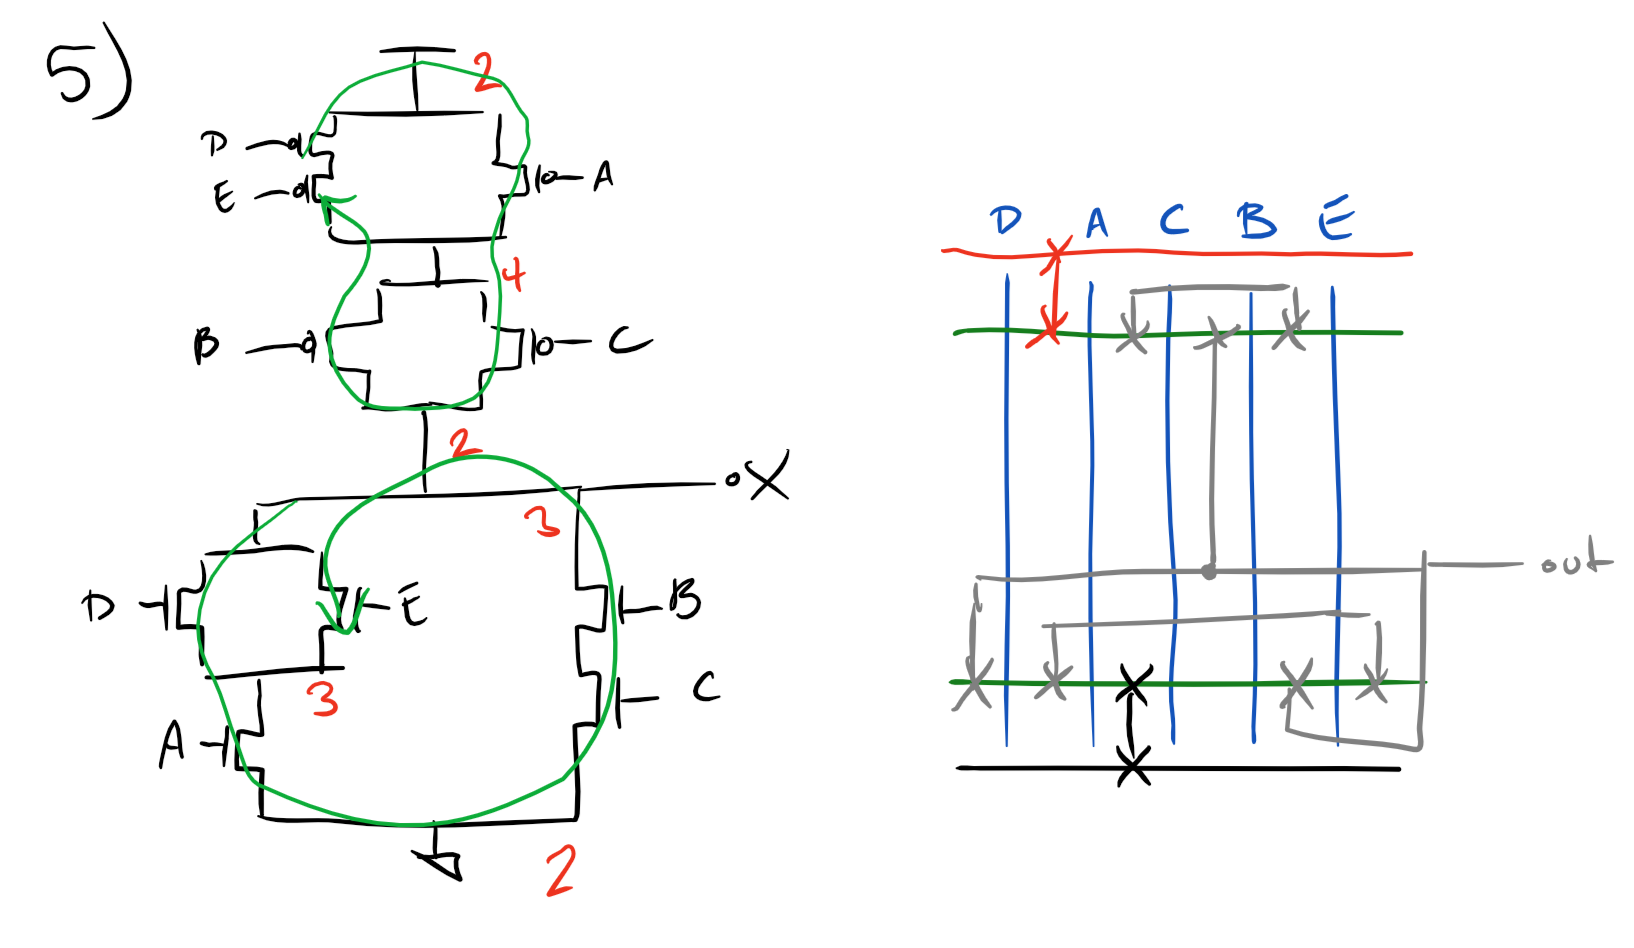 5)
2
D
E
A
4
B
C
2
X
3
D
E
B
3
C
A
2
D A C B E
out